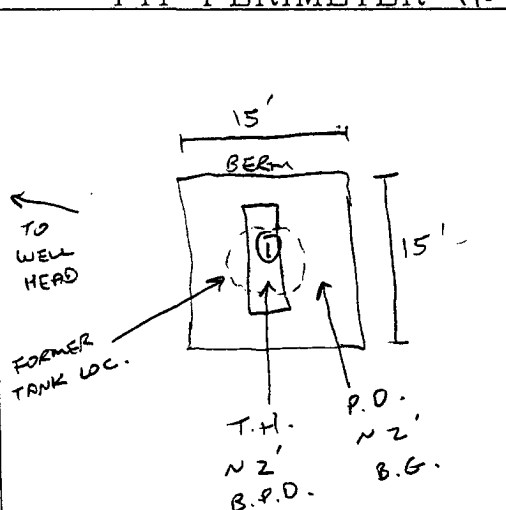 PIT PERIMETER
15'
BERM
15'
TO
WELL
HEAD
1
FORMER
TANK LOC.
T.H.
~ 2'
B.P.D.
P.D.
~ 2'
B.G.